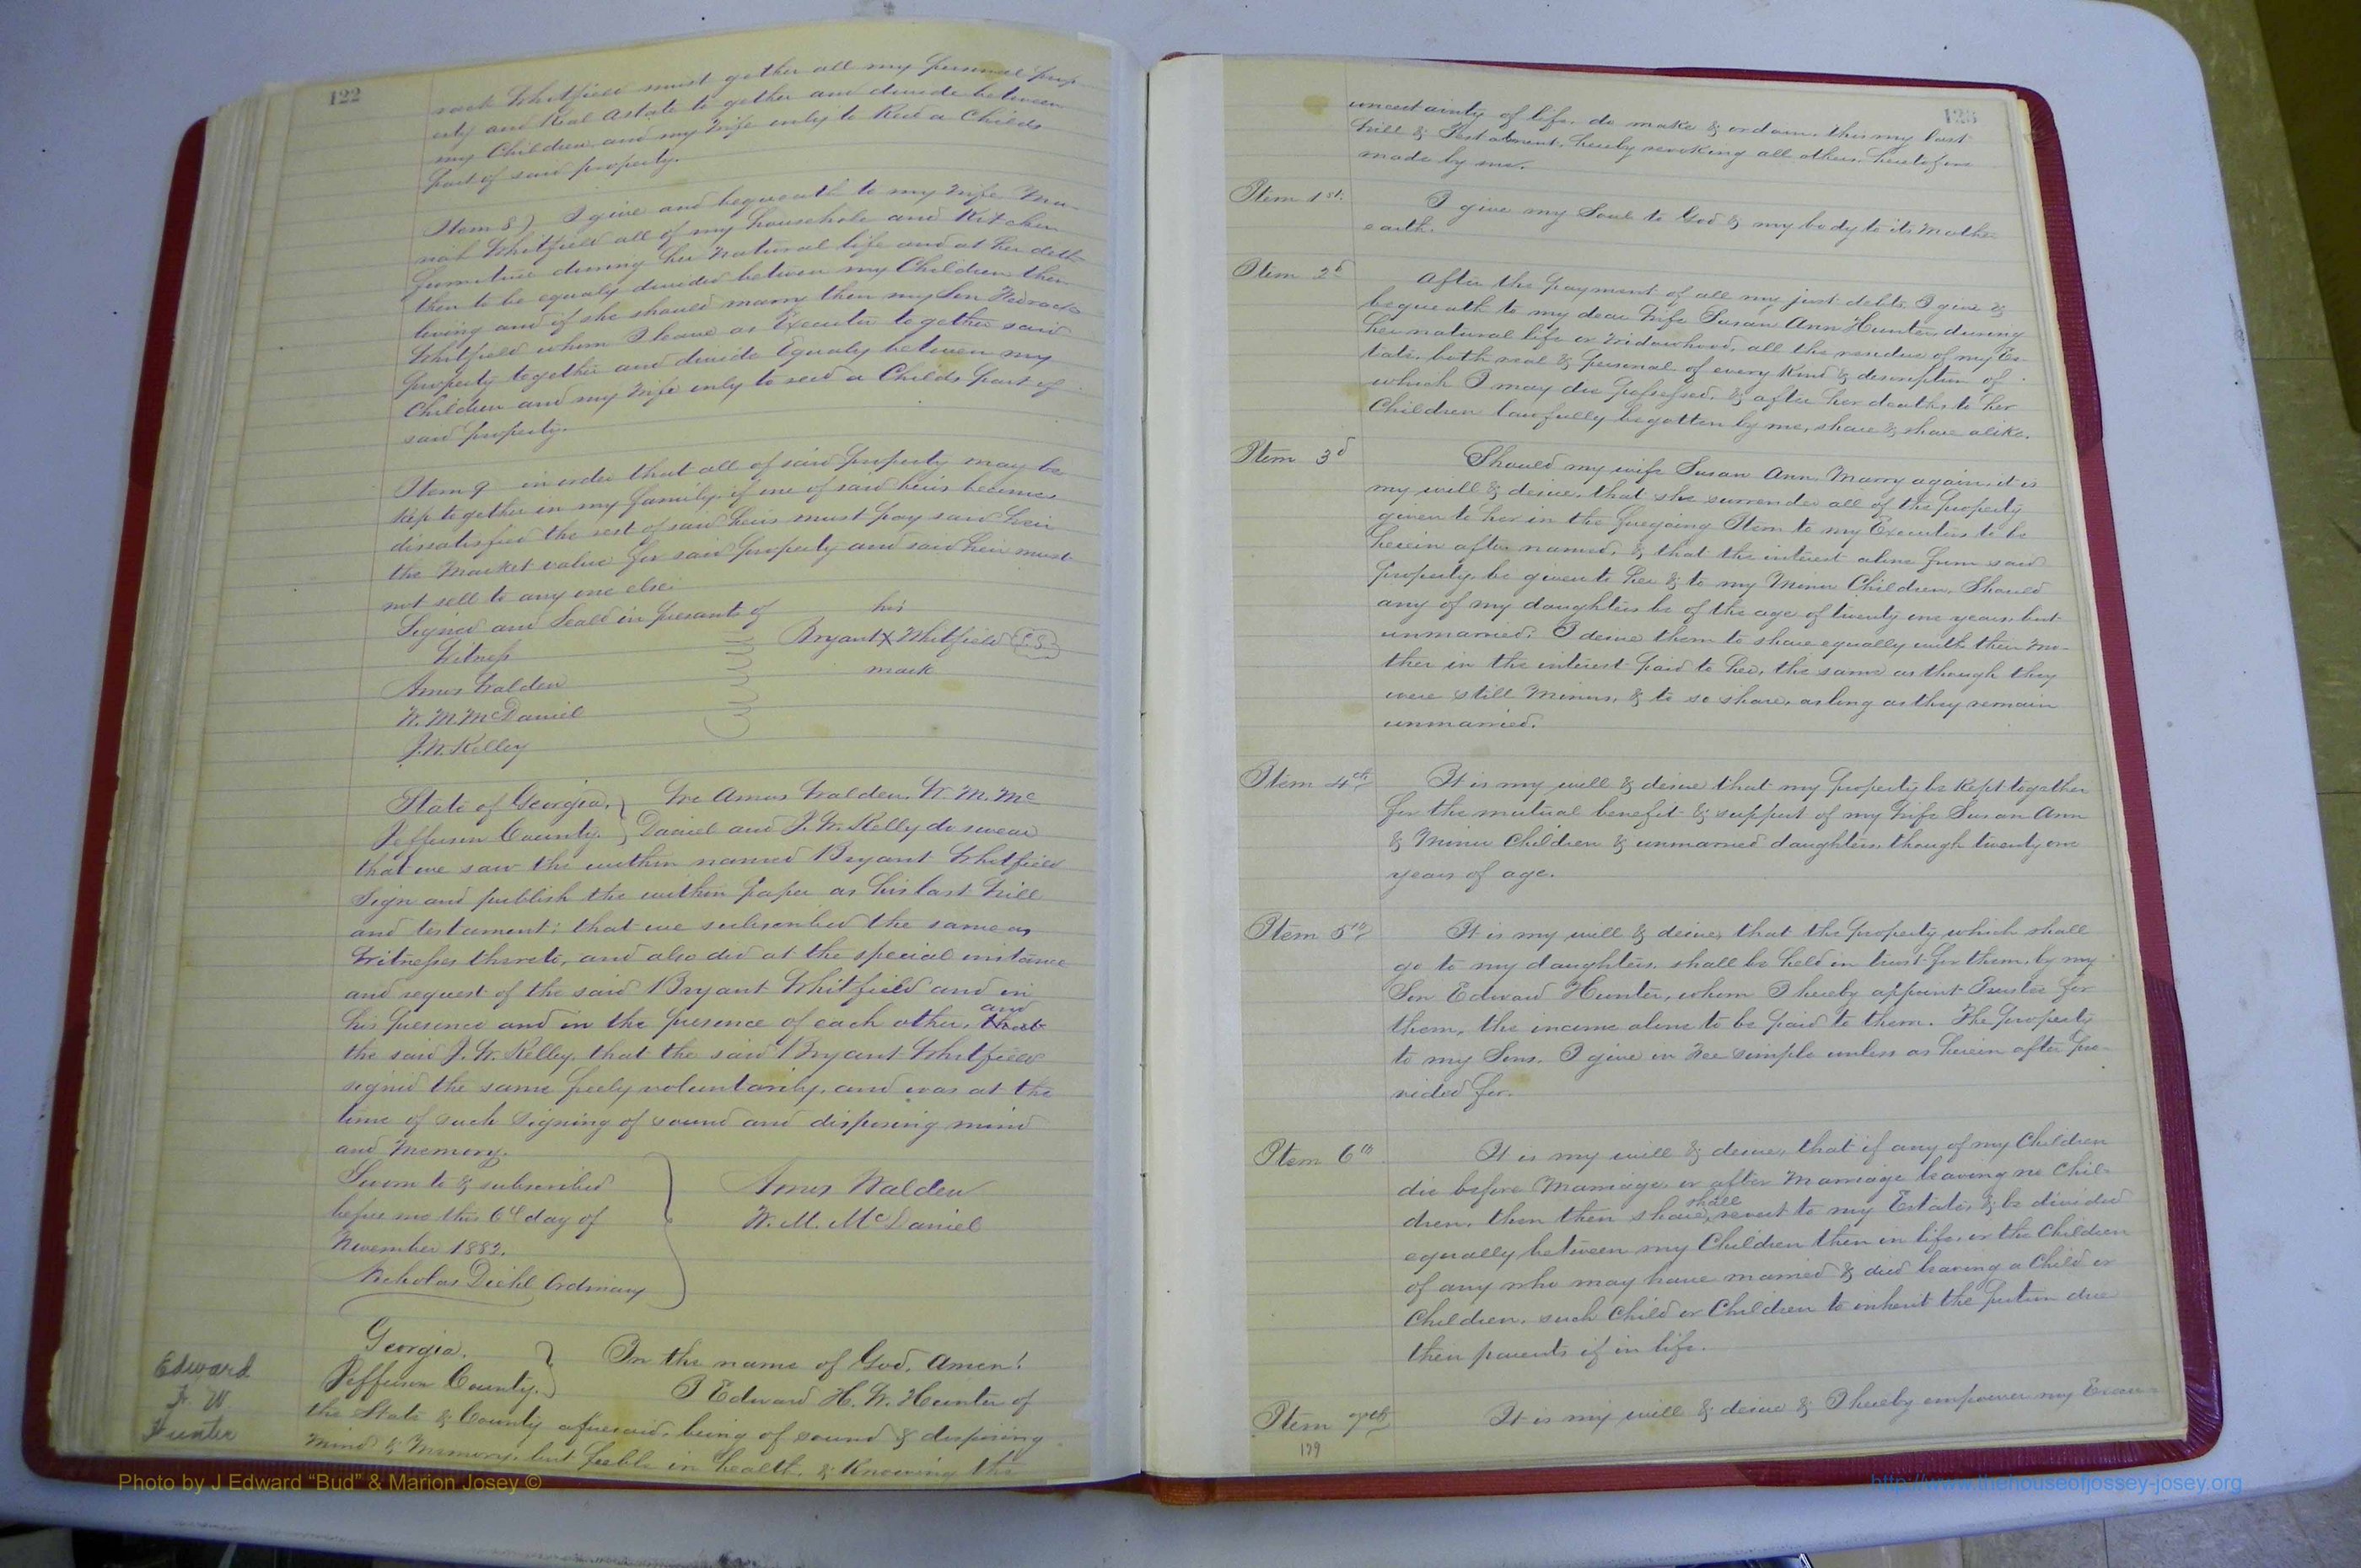 122
rock Whitfield must gather all my personal prop-
erty and Real Astate to gether and devide between
my Children, and my Wife only to Reid a Childs
part of said property.
Item 8) I give and bequeath to my Wife
Whitfield all of my household and Kitchen
furniture during her natural life and at her deth
then to be equaly divided between my Children then
living and if she should marry then my Son
Whitfield whom I leave as Executor to gether said
property together and divide Equaly between my
Children and my Wife only to reid a Childs part of
said property.
Item 9 in order that all of said property may be
kep together in my family, if one of said heirs becomes
dissatisfied the rest of said heirs must pay said heir
the Market value for said property and said heir must
not sell to any one else.
Signed and Seald in presants of his
Witness Bryant X Whitfield (L.S.)
Amos Walden mark
W. M. McDaniel
J. W. Kelley
State of Georgia, } We Amos Walden, W. M. Mc
Jefferson County. } Daniel and J. W. Kelly do swear
that we saw the within named Bryant Whitfield
Sign and publish the within paper as his last Will
and testament; that we subscribed the same as
Witnesses thereto, and also did at the special instance
and request of the said Bryant Whitfield and in
his presence and in the presence of each other, and that
the said J. W. Kelley, that the said Bryant Whitfield
signed the same freely voluntarily, and was at the
time of such Signing of sound and disposing mind
and Memory.
Sworn to & subscribed } Amos Walden
before me this 6th day of W. M. McDaniel
November 1882.
Nicholas Diehl Ordinary
Georgia. } In the name of God, Amen!
Jefferson County. } I Edward H. W. Hunter of
the State & County aforesaid, being of sound & disposing
mind & Memory, but feeble in health, & Knowing the
Edward
H. W.
Hunter
123
uncertainty of life, do make & ordain this my last
Will & Testament, hereby revoking all others heretofore
made by me.
Item 1st. I give my Soul to God & my body to its Mother
earth.
Item 2d After the payment of all my just debts, I give &
bequeath to my dear Wife Susan Ann Hunter, during
her natural life or Widowhood, all the residue of my Es-
tate, both real & personal of every Kind & description of
which I may die possessed, & after her death, to her
Children lawfully begotten by me, share & share alike.
Item 3d Should my wife Susan Ann, Marry again, it is
my will & desire, that she surrender all of the property
given to her in the foregoing Item to my Executors to be
herein after named, & that the interest alone from said
property, be given to her & to my Minor Children. Should
any of my daughters be of the age of twenty one years, but
unmarried, I desire them to share equally with their mo-
ther in the interest paid to her, the same as though they
were still Minors, & to so share, as long as they remain
unmarried.
Item 4th It is my will & desire that my property be Kept together
for the mutual benefit & support of my Wife Susan Ann
& Minor Children & unmarried daughters, though twenty one
years of age.
Item 5th It is my will & desire, that the property which shall
go to my daughters, shall be held in trust for them, by my
Son Edward Hunter, whom I hereby appoint Trustee for
them, the income alone to be paid to them. The property
to my Sons, I give in Fee simple unless as herein after pro-
vided for.
Item 6th It is my will & desire, that if any of my Children
die before Marriage, or after Marriage leaving no Chil-
dren, then their share, shall revert to my Estate, & be divided
equally between my Children then in life, or the Children
of any who may have married & died leaving a Child or
Children, such Child or Children to inherit the portion due
their parents if in life.
Item 7th It is my will & desire & I hereby empower my Execu-
129
Photo by J Edward "Bud" & Marion Josey ©
http://www.thehouseofjossey-josey.org